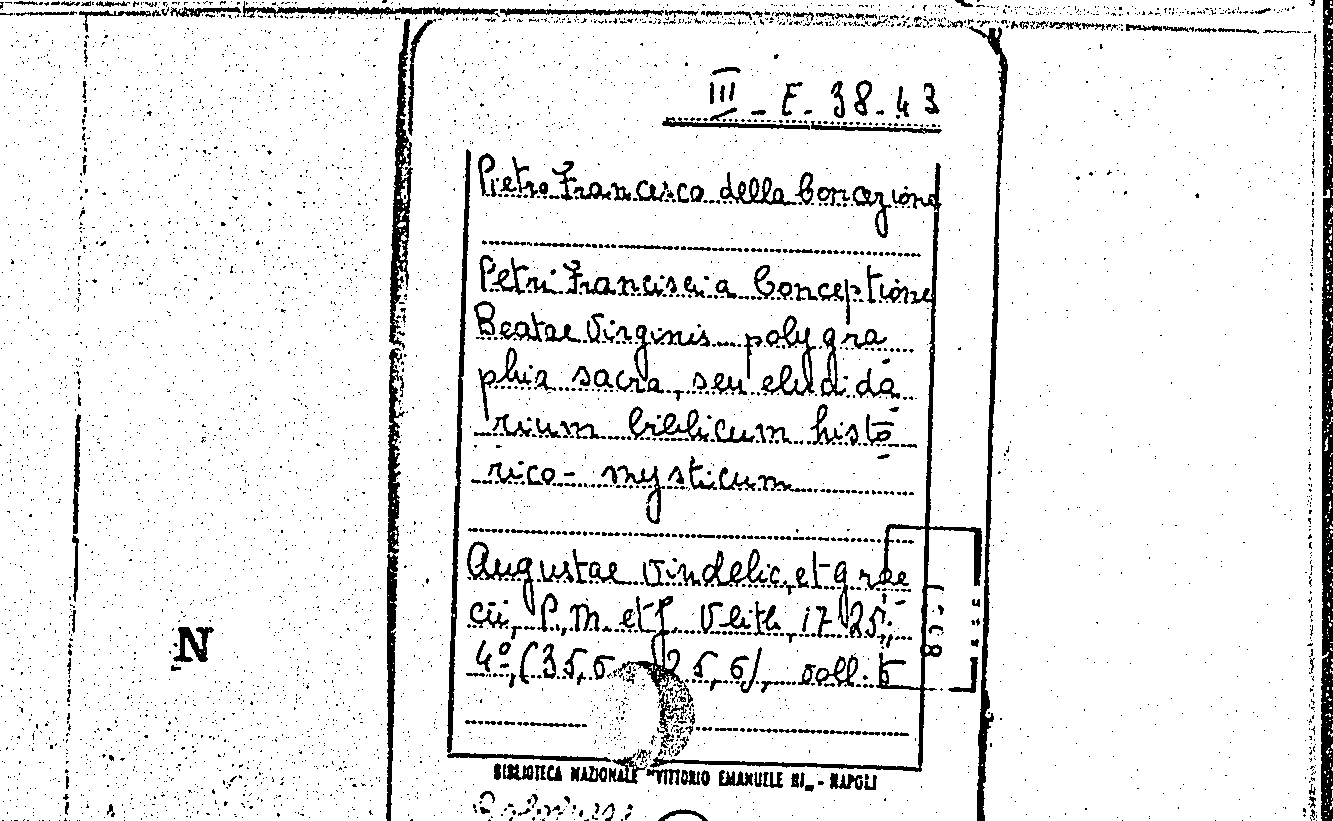 III - F. 38-43
Pietro Francesco della Concezione
Petri Francisci a Conceptione
Beatae Virginis polygra
phia sacra, seu elucida
rium biblicum histo
rico-mysticum
Augustae Vindelic. et grae
cii, P. M. et J. Veith, 1725,
4º, (35,5 25,6), voll. 5
BIBLIOTECA NAZIONALE "VITTORIO EMANUELE III„ - NAPOLI
N